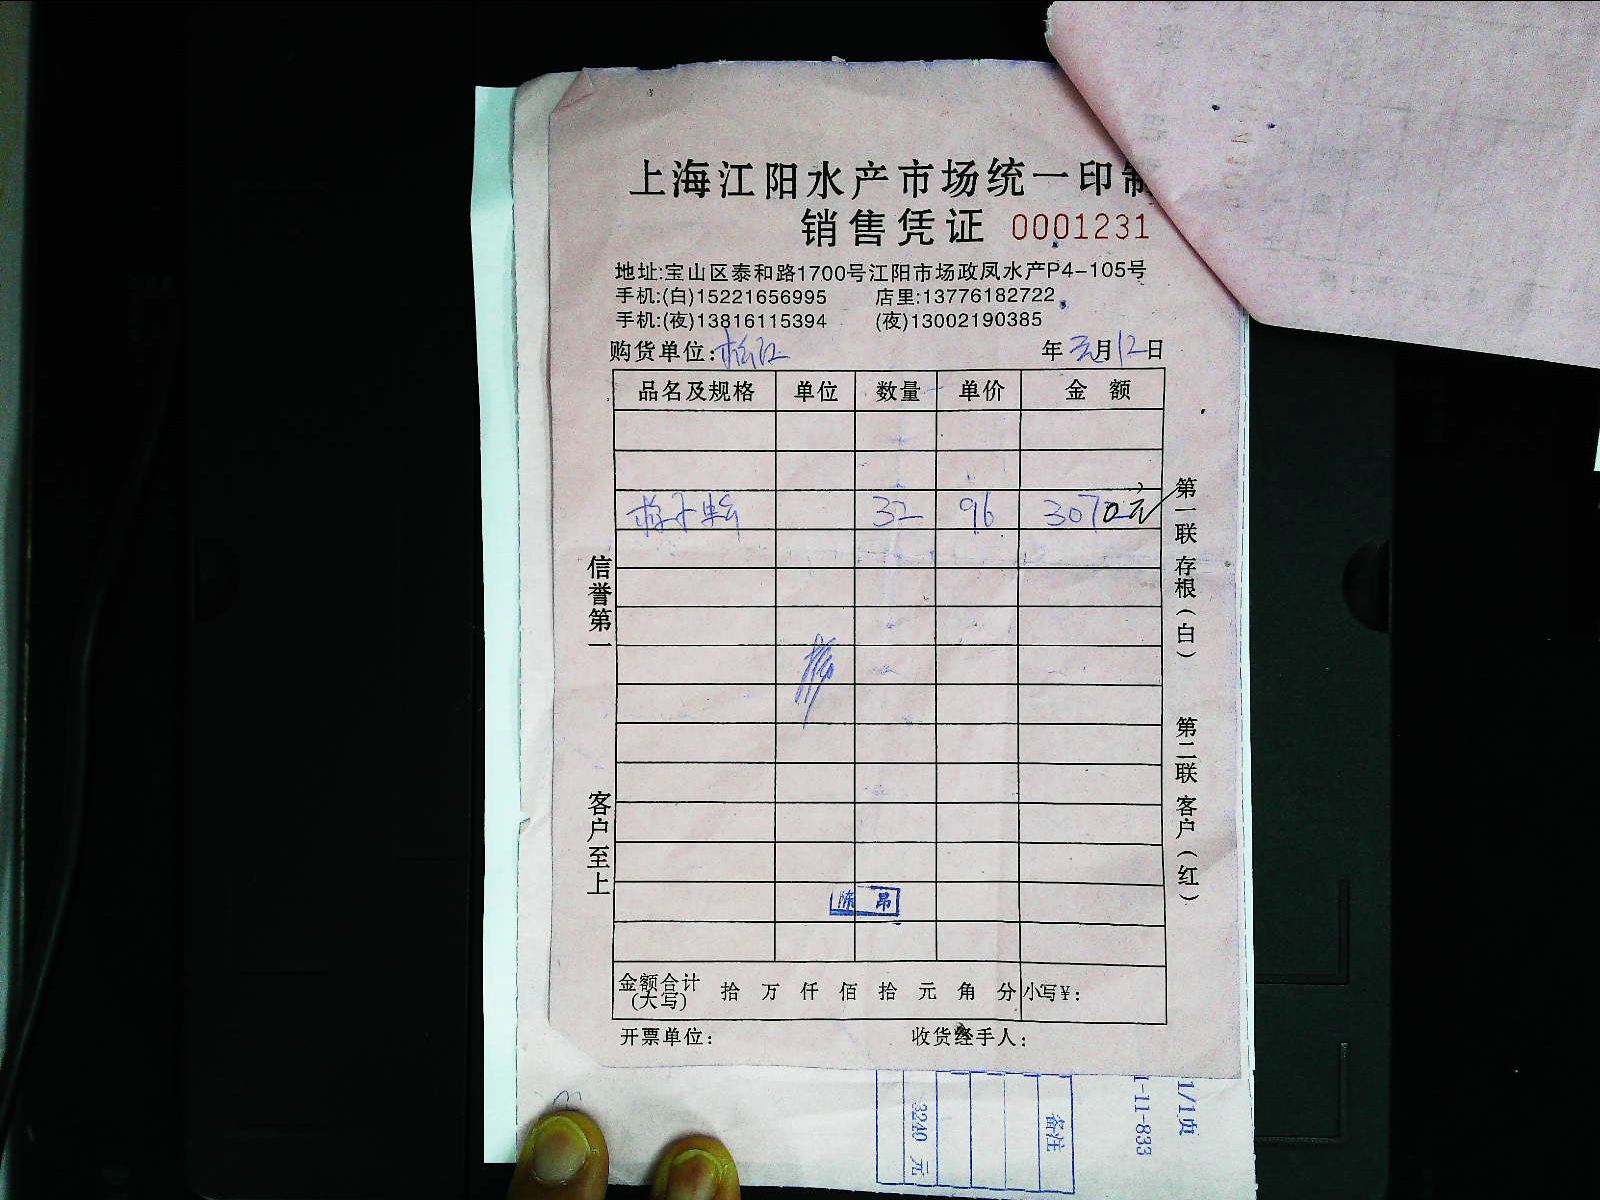 上海江阳水产市场统一印制
销售凭证 0001231
地址:宝山区泰和路1700号江阳市场政凤水产P4-105号
手机:(白)15221656995 店里:13776182722
手机:(夜)13816115394 (夜)13002190385
购货单位: 年元月12日
品名及规格 单位 数量 单价 金额
32 96 3070元
信誉第一
客户至上
第一联 存根(白)
第二联 客户(红)
陈昂
金额合计(大写) 拾 万 仟 佰 拾 元 角 分 小写¥:
开票单位: 收货经手人:
备注
3240 元
1/1页
1-11-833